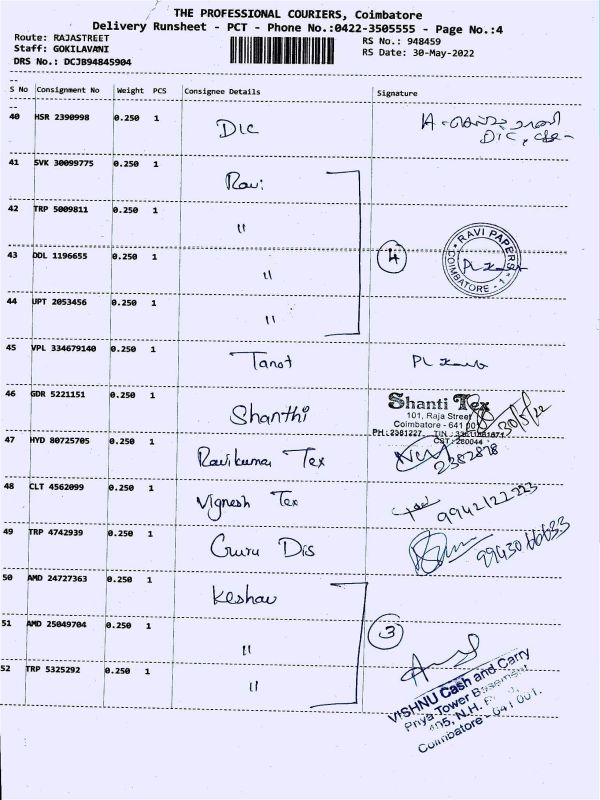 THE PROFESSIONAL COURIERS, Coimbatore
Delivery Runsheet - PCT - Phone No.:0422-3505555 - Page No.:4
Route: RAJASTREET
Staff: GOKILAVANI
DRS No.: DCJB94845904
RS No.: 948459
RS Date: 30-May-2022
S No Consignment No Weight PCS Consignee Details Signature
40 HSR 2390998 0.250 1 DIC
DIC, cbe-
41 SVK 30099775 0.250 1 Ravi
42 TRP 5009811 0.250 1 "
43 DDL 1196655 0.250 1 " 4
RAVI PAPERS
COIMBATORE - 1
44 UPT 2053456 0.250 1 "
45 VPL 334679140 0.250 1 Tanot
46 GDR 5221151 0.250 1 Shanthi
Shanti Tex
101, Raja Street
Coimbatore - 641 001
PH: 2381227 TIN :
CST: 260044
30/5/22
47 HYD 80725705 0.250 1 Ravikumar Tex
2382878
48 CLT 4562099 0.250 1 Vignesh Tex
9942122223
49 TRP 4742939 0.250 1 Guru Dis
50 AMD 24727363 0.250 1 Keshav
51 AMD 25049704 0.250 1 " 3
52 TRP 5325292 0.250 1 "
VISHNU Cash and Carry
Priya Tower Basement
N.H.
Coimbatore - 641 001.